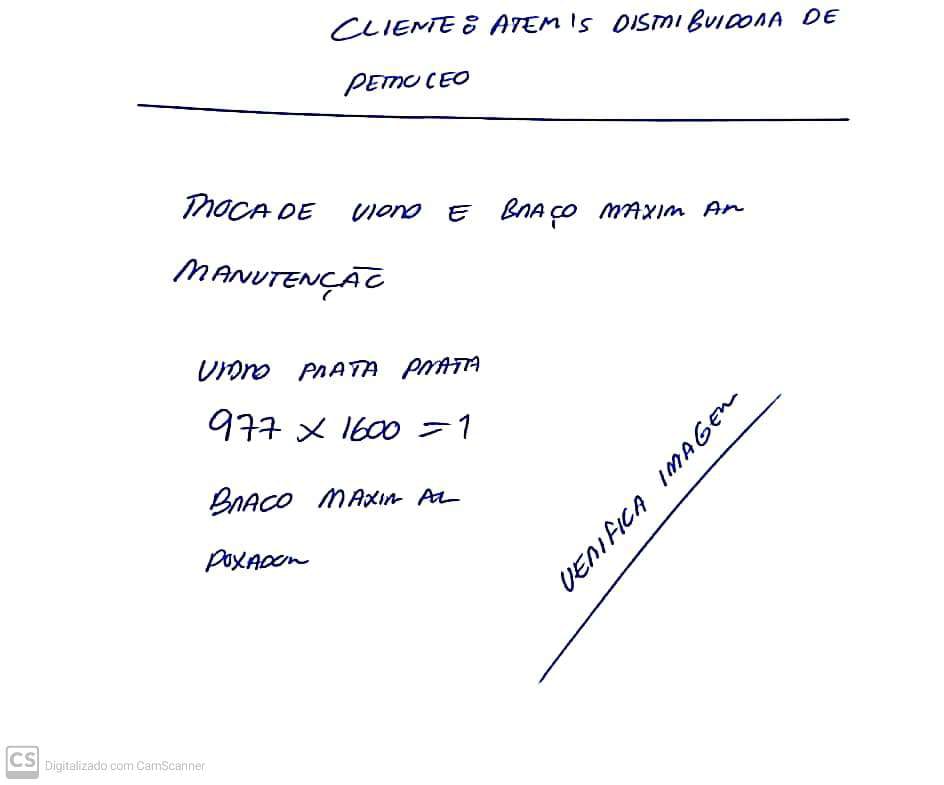 CLIENTE: ATEM'S DISTRIBUIDORA DE
PETROLEO
TROCA DE VIDRO E BRAÇO MAXIM AR
MANUTENÇÃO
VIDRO PRATA PRATA
977 X 1600 = 1
BRACO MAXIM AR
PUXADOR
VERIFICA IMAGEM
CS Digitalizado com CamScanner